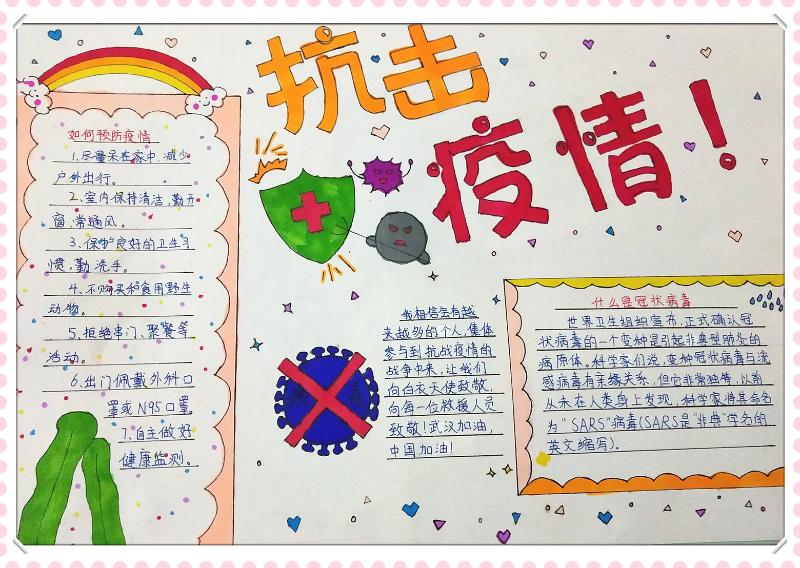 抗击
疫情!
如何预防疫情
1.尽量呆在家中,减少
户外出行。
2.室内保持清洁,勤开
窗,常通风。
3.保护良好的卫生习
惯,勤洗手。
4.不购买和食用野生
动物。
5.拒绝串门、聚餐等
活动。
6.出门佩戴外科口
罩或N95口罩。
7.自主做好
健康监测。
我相信会有越
来越多的个人,集体
参与到抗战疫情的
战争中来,让我们
向白衣天使致敬,
向每一位救援人员
致敬!武汉加油,
中国加油!
什么是冠状病毒
世界卫生组织宣布,正式确认冠
状病毒的一个变种是引起非典型肺炎的
病原体。科学家们说,变种冠状病毒与流
感病毒有亲缘关系,但它非常独特,以前
从未在人类身上发现,科学家将其命名
为"SARS"病毒(SARS是"非典"学名的
英文缩写).